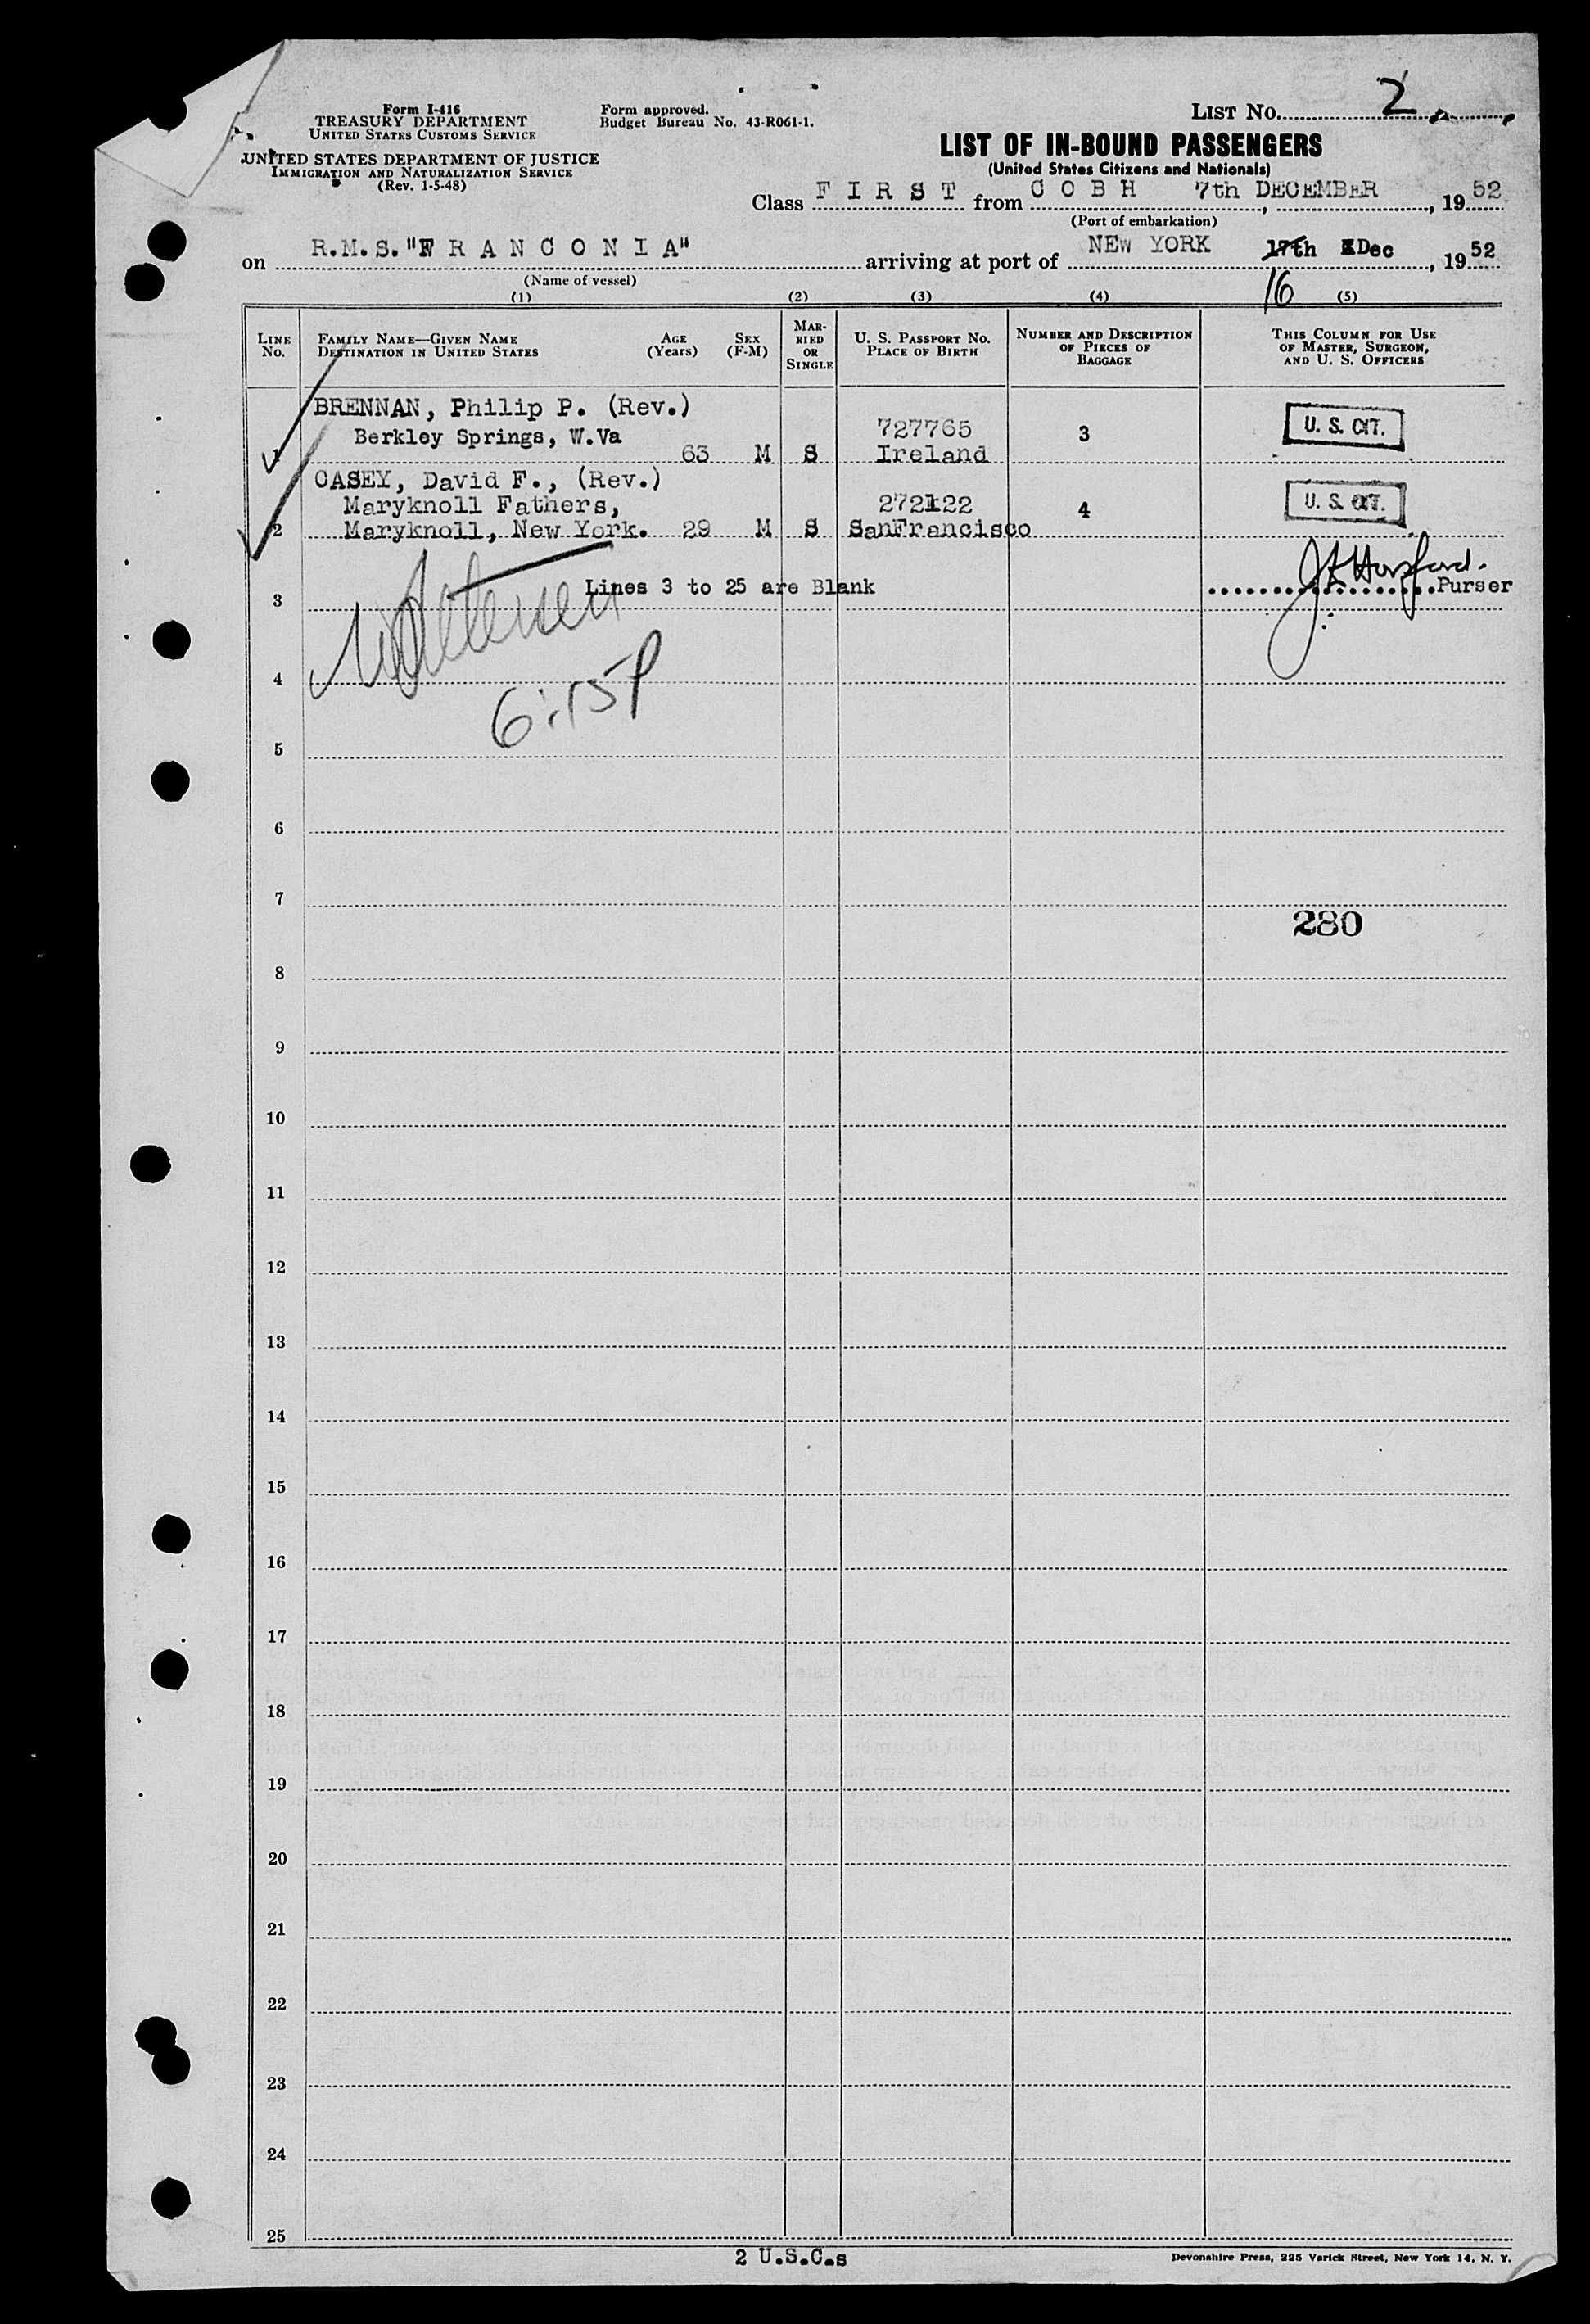 Form I-416
TREASURY DEPARTMENT
UNITED STATES CUSTOMS SERVICE
UNITED STATES DEPARTMENT OF JUSTICE
IMMIGRATION AND NATURALIZATION SERVICE
(Rev. 1-5-48)
Form approved.
Budget Bureau No. 43-R061-1.
LIST NO. 2
LIST OF IN-BOUND PASSENGERS
(United States Citizens and Nationals)
Class FIRST from COBH 7th DECEMBER, 1952
(Port of embarkation)
on R.M.S. "FRANCONIA" arriving at port of NEW YORK 17th Dec, 1952
(Name of vessel)
16
(1) (2) (3) (4) (5)
LINE NO.
FAMILY NAME—GIVEN NAME
DESTINATION IN UNITED STATES
AGE (Years)
SEX (F-M)
MARRIED OR SINGLE
U. S. PASSPORT NO.
PLACE OF BIRTH
NUMBER AND DESCRIPTION OF PIECES OF BAGGAGE
THIS COLUMN FOR USE OF MASTER, SURGEON, AND U. S. OFFICERS
BRENNAN, Philip P. (Rev.)
Berkley Springs, W.Va 727765 3 U. S. CIT.
1 63 M S Ireland
CASEY, David F., (Rev.)
Maryknoll Fathers, 272122 4 U. S. CIT.
2 Maryknoll, New York. 29 M S SanFrancisco
Lines 3 to 25 are Blank Purser
3
4
6:15P
5
6
7
280
8
9
10
11
12
13
14
15
16
17
18
19
20
21
22
23
24
25
2 U.S.C.s
Devonshire Press, 225 Varick Street, New York 14, N. Y.